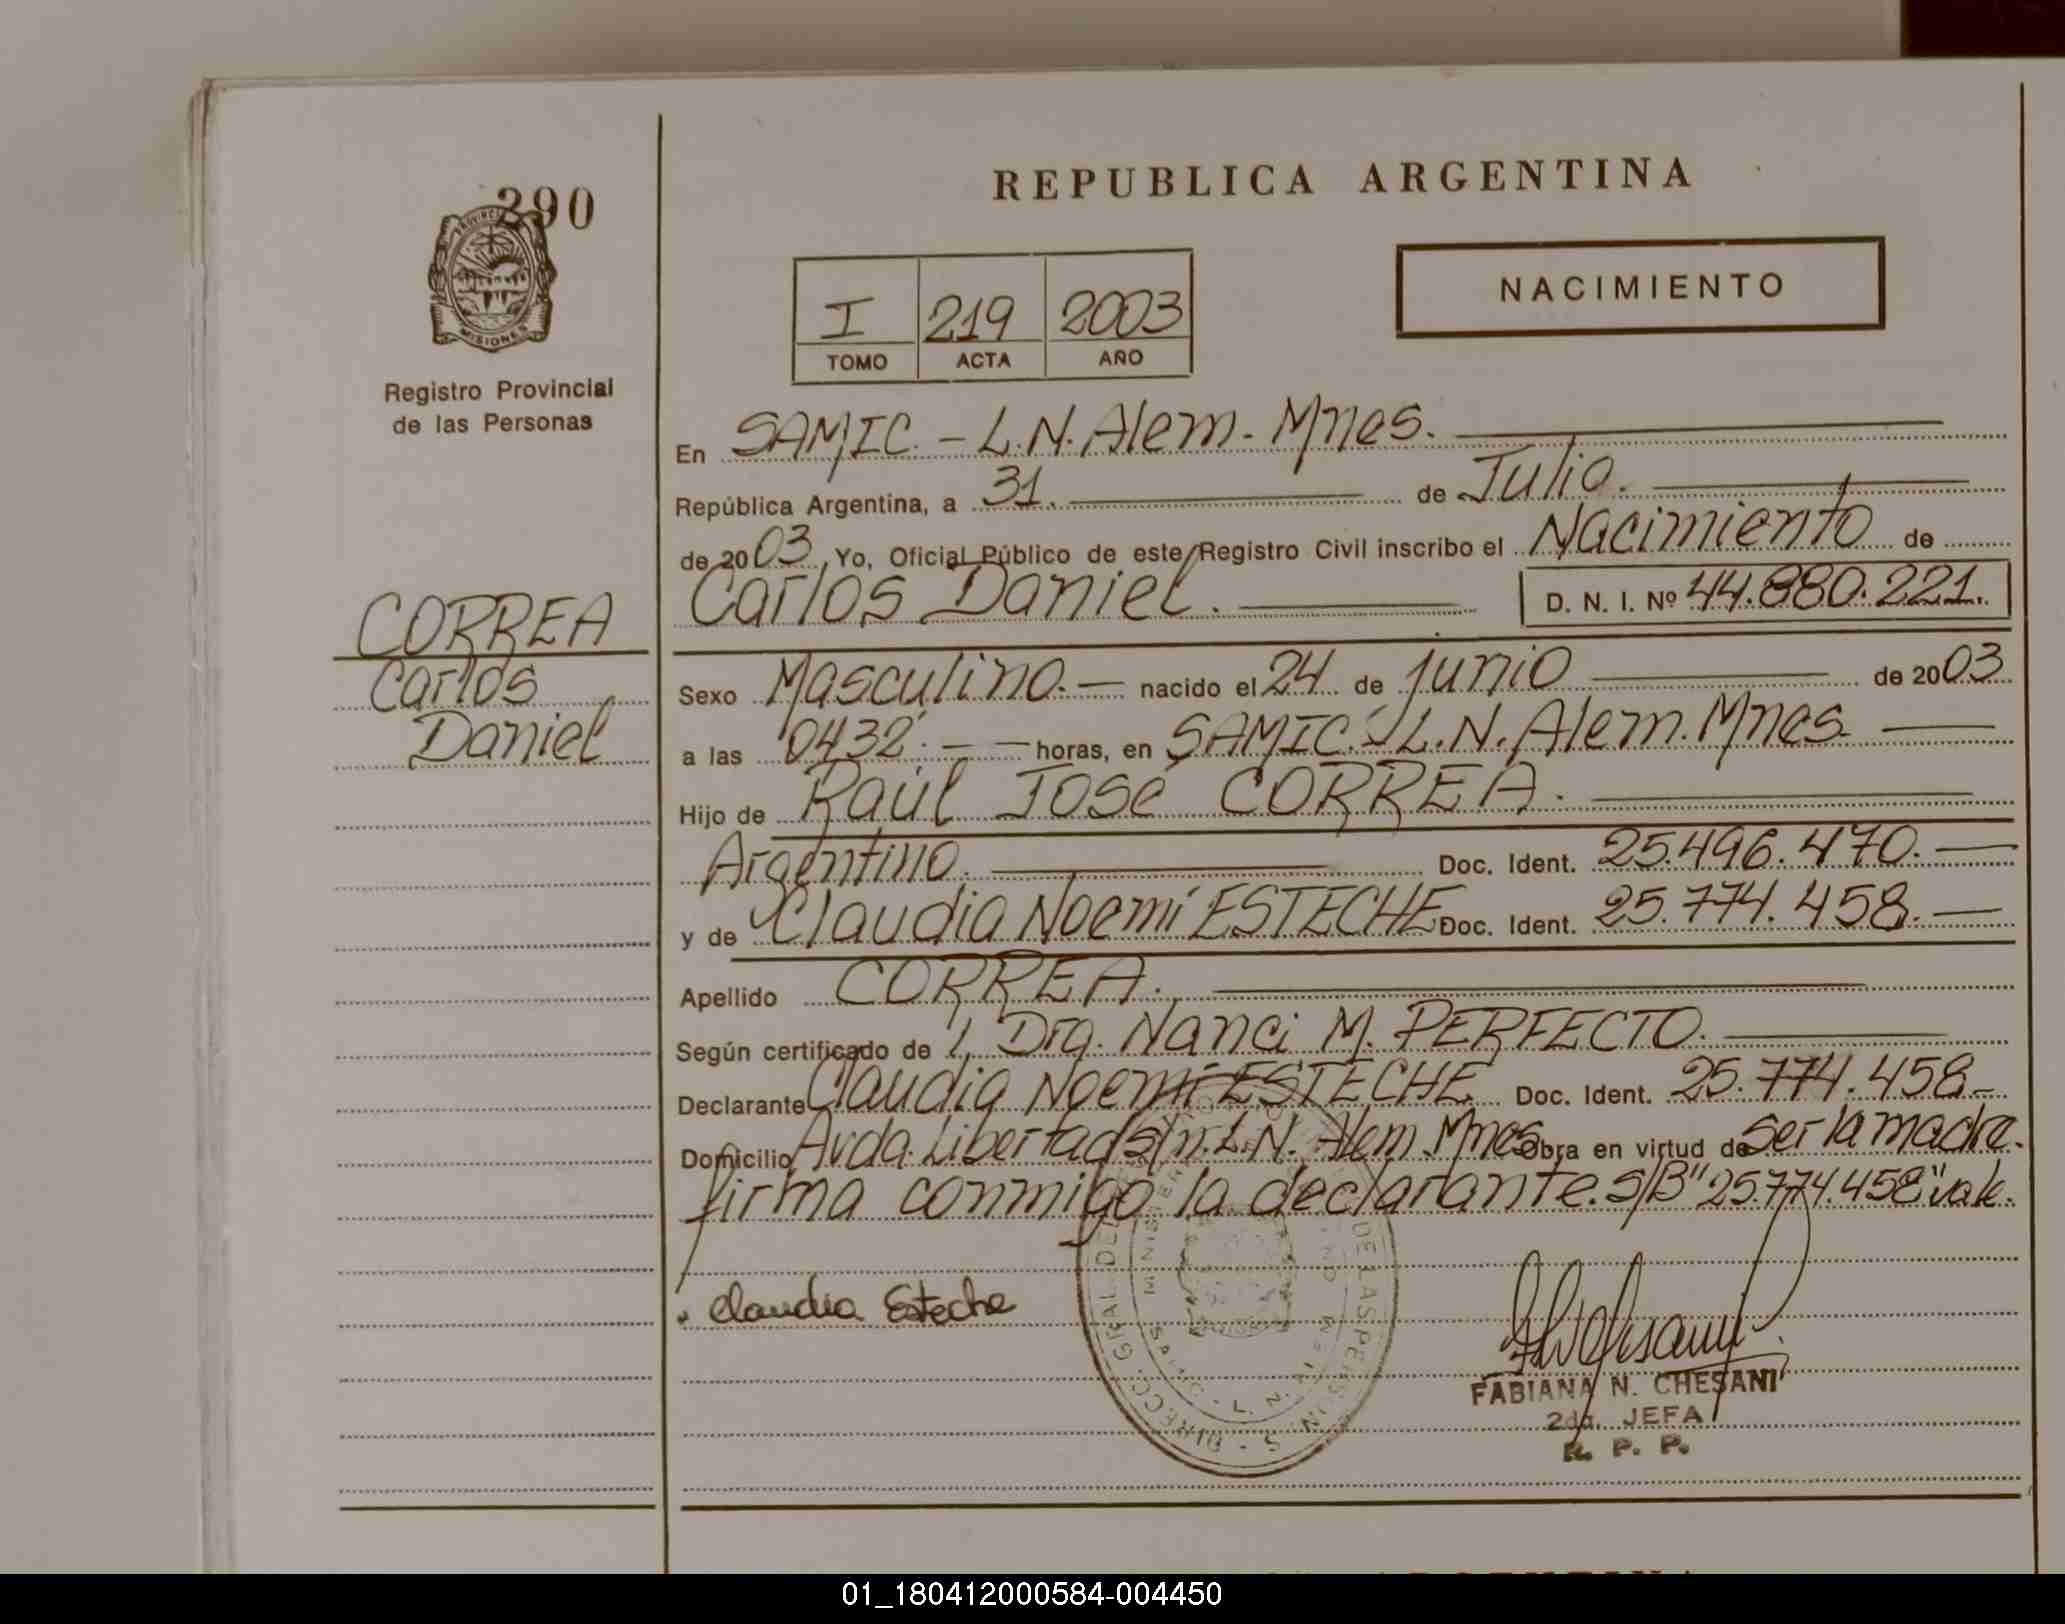 390
PROVINCIA
MISIONES
Registro Provincial
de las Personas
CORREA
Carlos
Daniel
REPUBLICA ARGENTINA
NACIMIENTO
I 219 2003
TOMO ACTA AÑO
En SAMIC. - L.N. Alem. Mnes.
República Argentina, a 31. de Julio.
de 2003, Yo, Oficial Público de este Registro Civil inscribo el Nacimiento de
Carlos Daniel. D. N. I. Nº 44.880.221.
Sexo Masculino. - nacido el 24 de junio de 2003
a las 0432. - - horas, en SAMIC. - L.N. Alem. Mnes.
Hijo de Raúl José CORREA.
Argentino. Doc. Ident. 25.496.470. -
y de Claudia Noemí ESTECHE Doc. Ident. 25.774.458. -
Apellido CORREA.
Según certificado de l, Dra. Nanci M. PERFECTO.
Declarante Claudia Noemí ESTECHE Doc. Ident. 25.774.458-
Domicilio Avda. Libertad s/n. L.N. Alem. Mnes Obra en virtud de ser la madre.
firma conmigo la declarante. S/B "25.774.458" vale.
Claudia Esteche
DIRECC. GRAL. DE LAS PERSONAS
SAMIC - L. N.
FABIANA N. CHESANI
2da. JEFA
R. P. P.
01_180412000584-004450